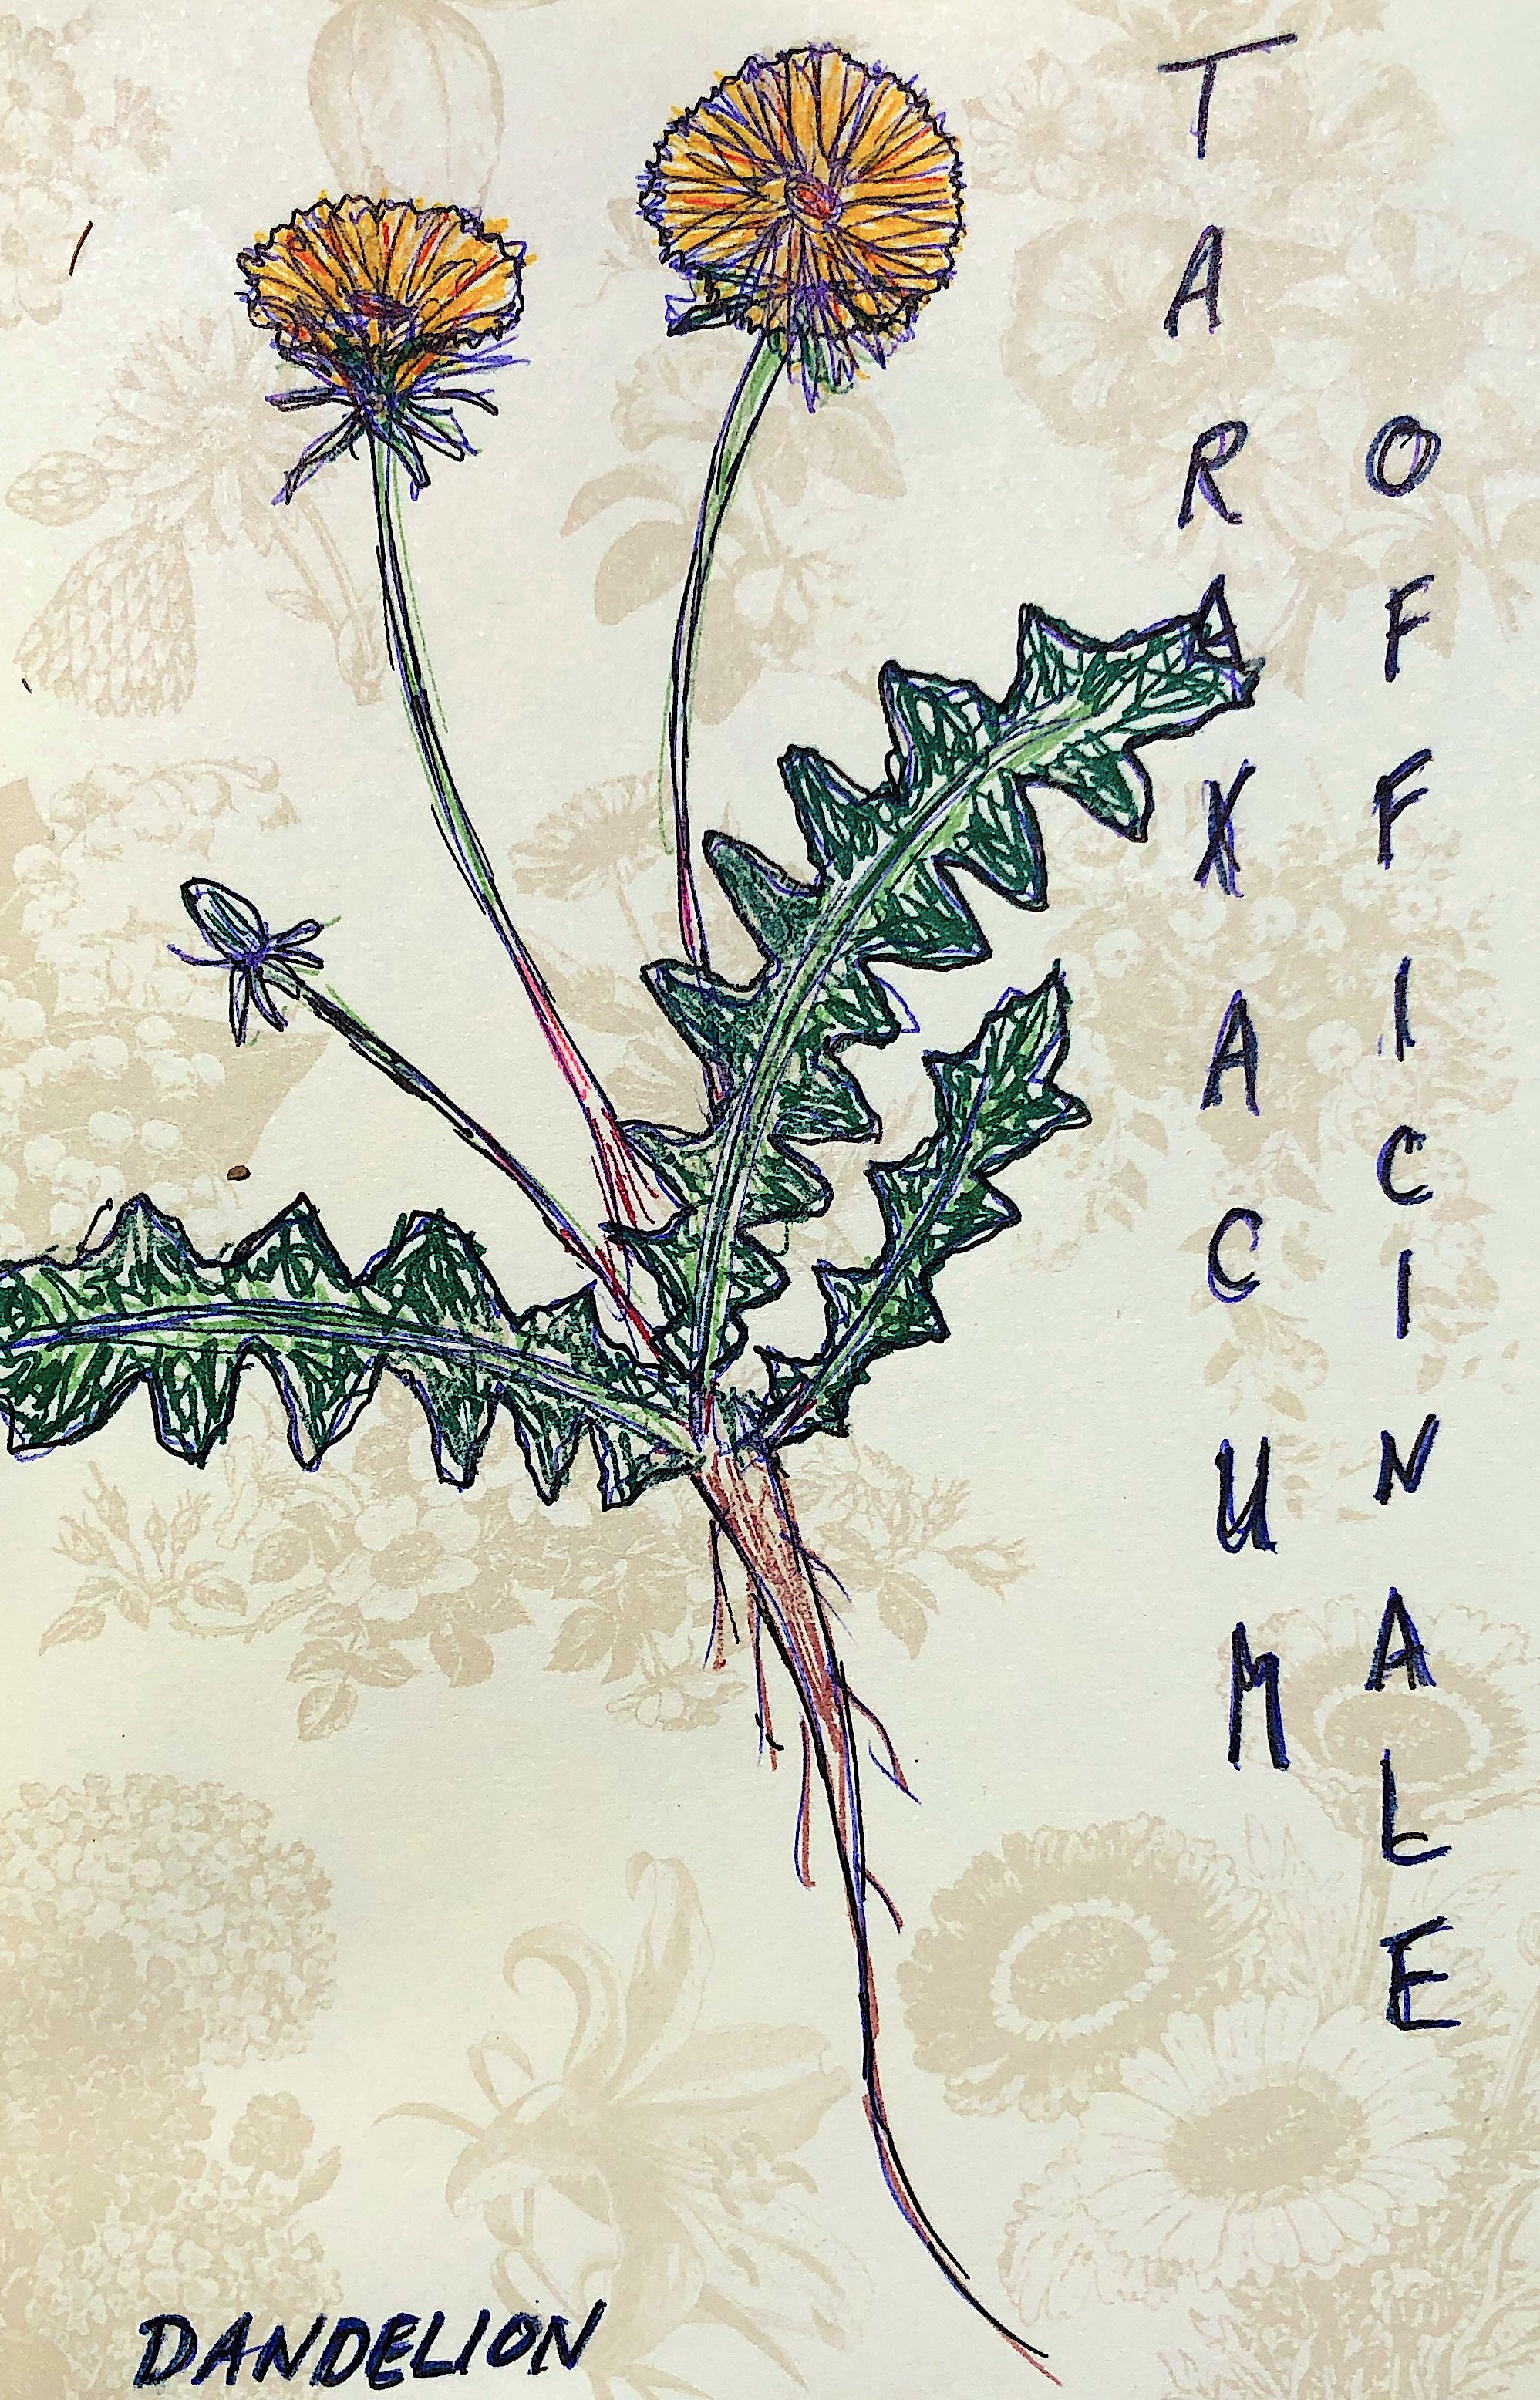 TARAXACUM
OFFICINALE
DANDELION